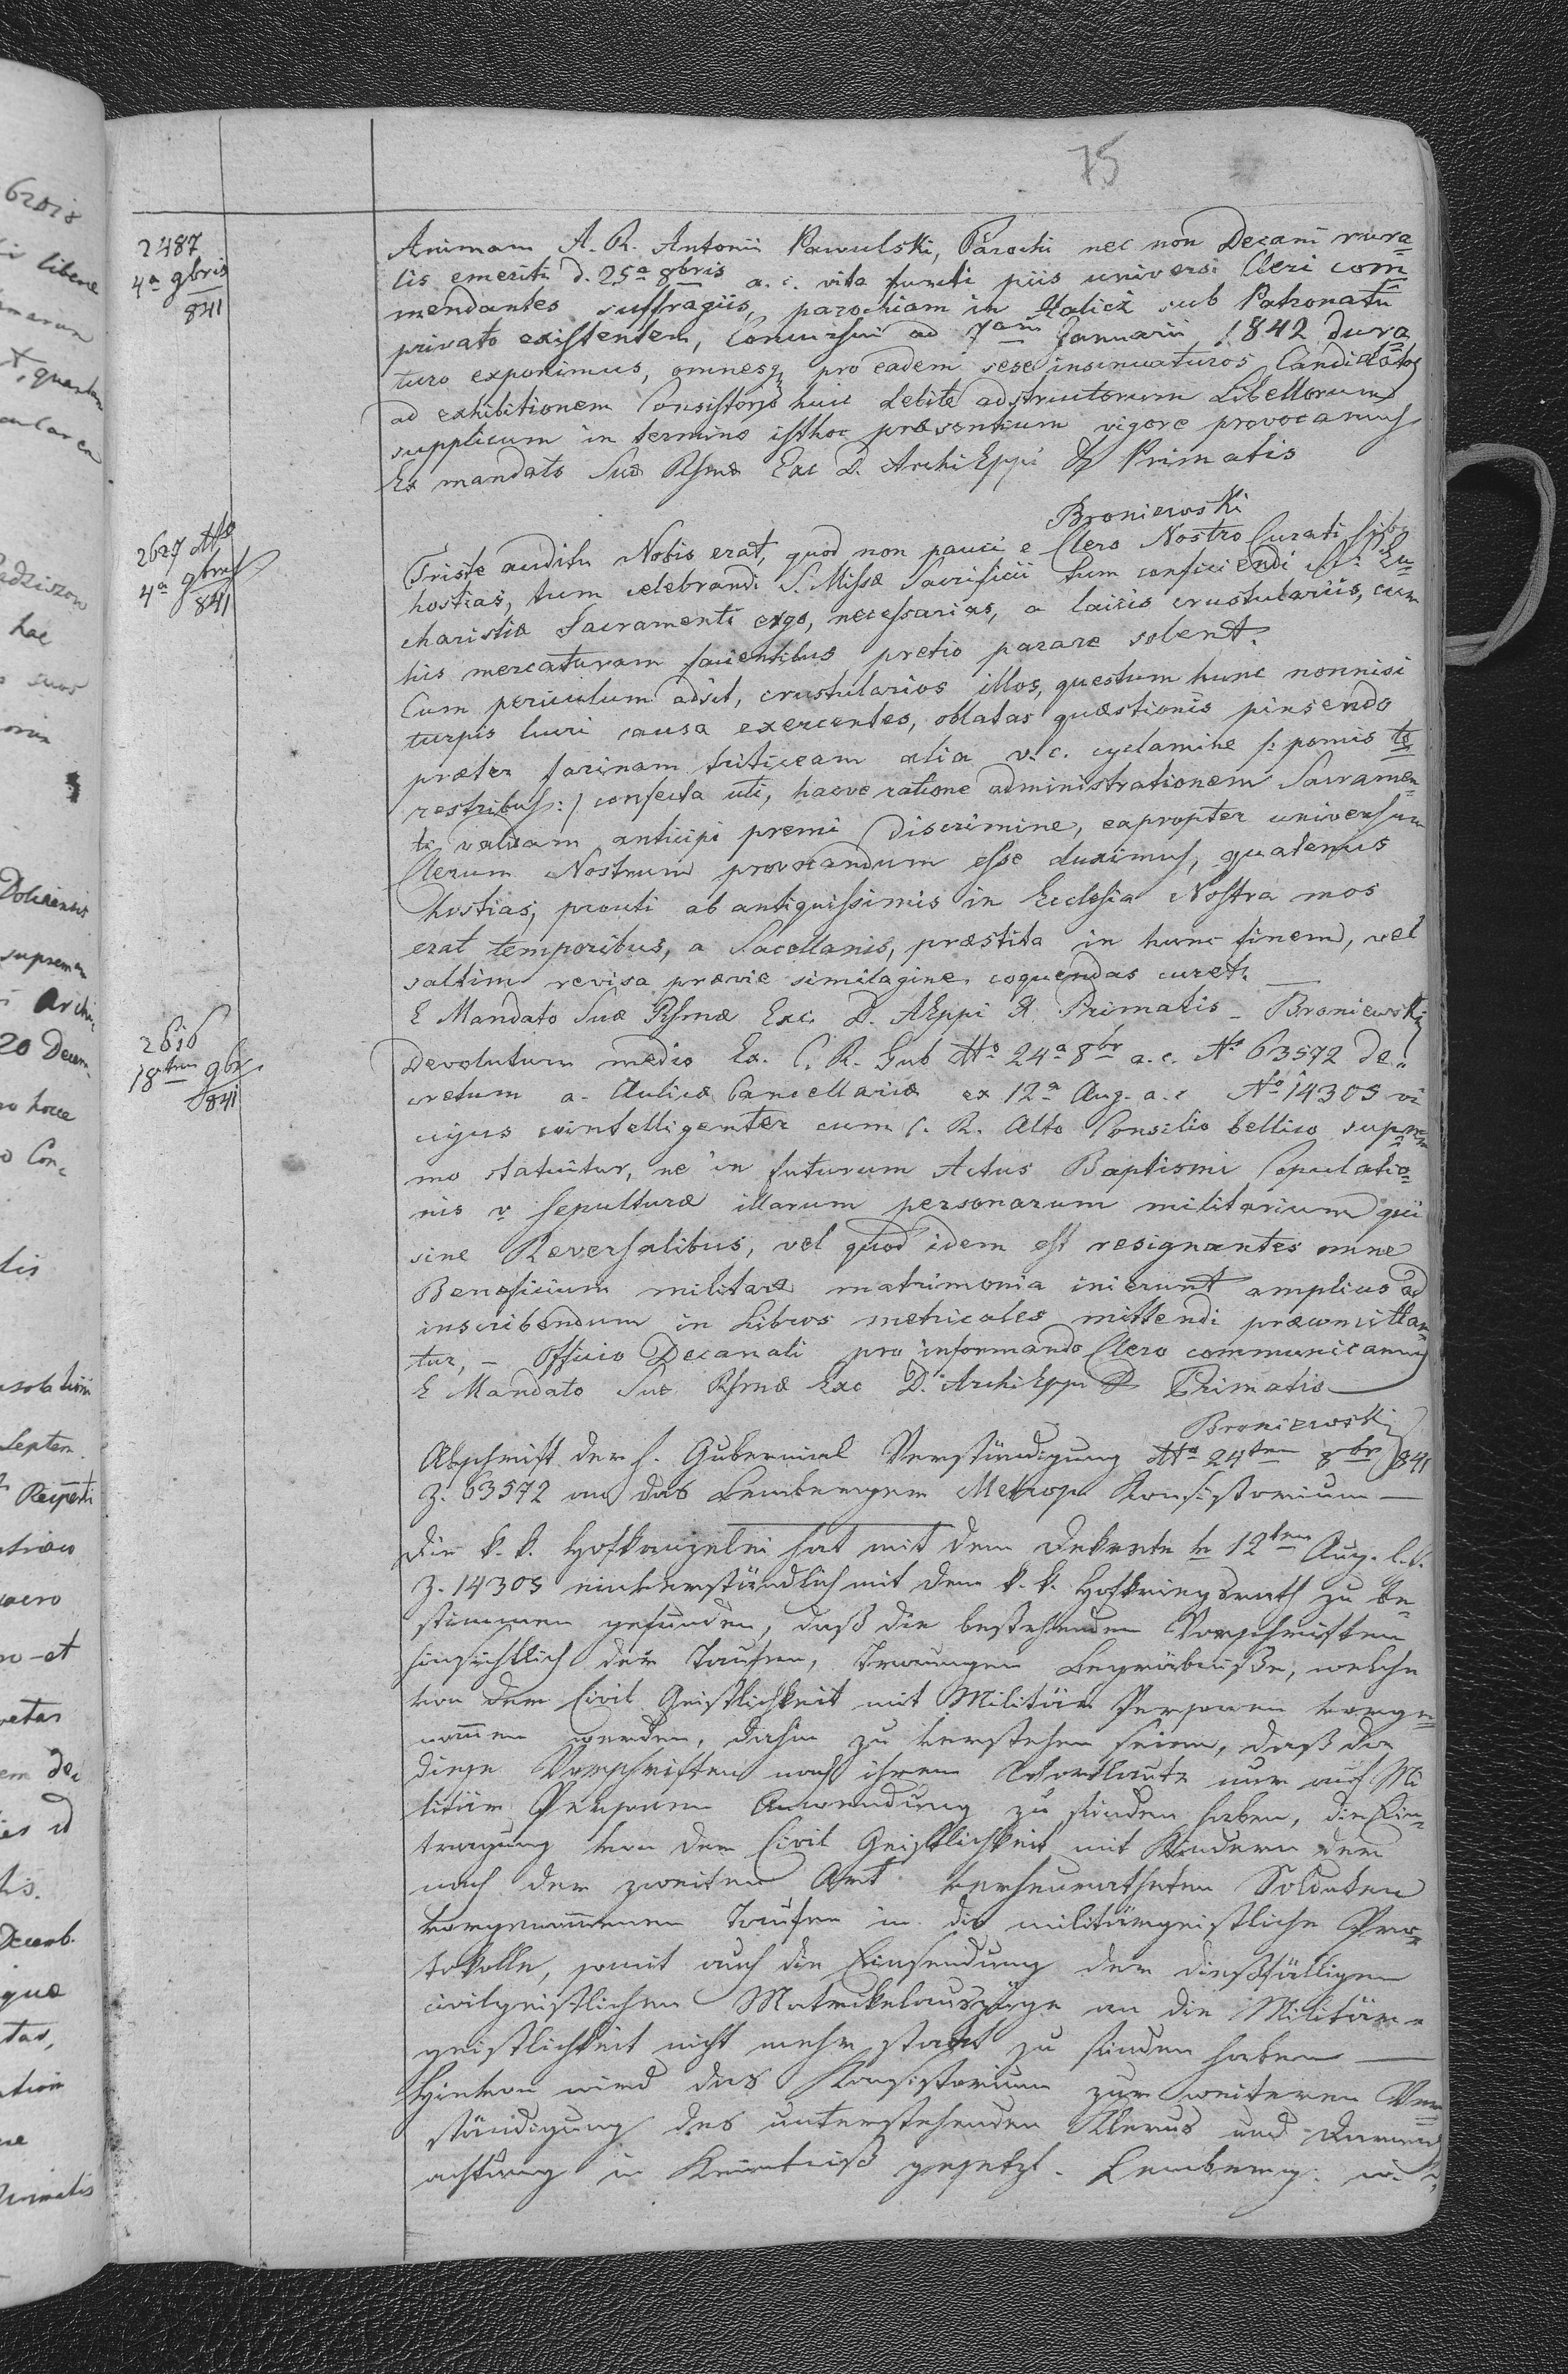 75
2487
4a 9bris
841
Animam A. R. Antonii Pawulski, Parochi nec non Decani rura=
lis emeriti d. 25a 8bris a. c. vita functi piis universi Cleri com=
mendantes suffragiis, parochiam in Halicz sub Patronatu
privato existentem, Concursui ad 7am Januarii 1842 dura=
turo exponimus, omnesq pro eadem sese insinuaturos Candidatos
ad exhibitionem Consistorio huic debite adstructorum Libellorum
supplicum in termino isthoc præsentium vigore provocamus
Ex mandato Suæ Rsmæ Exc D. ArchiEppi & Primatis
Broniewski
2627 Atto
4a 9bris
841
Triste auditu Nobis erat, quod non pauci e Clero Nostro Curati sibi
hostias, tum celebrandi S. Missæ Sacrificii tum conficiendi Eu=
charistiæ Sacramenti ergo, necessarias, a laicis crustulariis, cum
his mercaturam facientibus pretio parare solent.
Cum periculum adsit, crustularios illos, questum hunc nonnisi
turpis lucri causa exercentes, oblatas quæstionis pinsendo
præter farinam triticeam alia v. c. cyclamine /: pomis te=
restribus :/ confecta uti, hacve ratione administrationem Sacramen=
ti validam ancipi premi discrimine, eapropter universum
Clerum Nostrum provocandum esse duximus, quatenus
hostias, prouti ab antiquissimis in Ecclesia Nostra mos
erat temporibus, a Sacellanis, præstita in hunc finem, vel
saltim revisa prævie similagine coquendas curet.
E Mandato Suæ Rsmæ Exc. D. AEppi & Primatis _ Broniewski
2616
18tma 9br.
841
Devolutum medio Ex. C. R. Gub tto 24a 8br a. c. No 63572 De=
cretum a. Aulicæ Cancellariæ ex 12a Aug. a. c No 14305 vi
cujus cointelligenter cum C. R. Alto Consilio bellico supre=
mo statuitur, ne in futurum Actus Baptismi Copulatio=
nis v Sepulturæ illarum personarum militarium qui
sine Reversalibus, vel quod idem est resignantes omne
Beneficium militare matrimonia inierunt amplius ad
inscribendum in Libros metricales mittendi præ
tur, - Officio Decanali pro informando Clero communicamus
E Mandato Suæ Rsmæ Exc D. ArchiEppi & Primatis
Broniewski
Abschrift der h. Gubernial Verständigung tto 24ten 8br 841
Z. 63572 an das Lemberger Metrop Konsistorium —
Die k. k. Hofkanzelei hat mit dem Dekrete to 12ten Aug. l. J.
Z. 14305 einverständlich mit dem k. k. Hofkriegsrath zu be=
stimmen gefunden, daß die bestehenden Vorschriften
hinsichtlich der Taufen, Trauungen Begräbniße, welche
von der Civil Geistlichkeit mit Militär Personen vorge=
nommen werden, dahin zu verstehen seien, daß da
diese Vorschriften nach ihrem Wortlaute nur auf Mi
litär Personen Anwendung zu finden haben, die Ein=
tragung von der Civil Geistlichkeit mit Kindern der
nach der zweiten Art verheuratheten Soldaten
vorgenommenen Taufen in die militärgeistliche Pro=
tokolle, somit auch die Einsendung der dießfälligen
civilgeistlichen Matrikelauszüge an die Militär=
geistlichkeit nicht mehr statt zu finden haben —
Hievon wird das Konsistorium zur weiteren Ver=
ständigung des unterstehenden Klerus und Darnach
achtung in Kenntniß gesetzt. Lemberg